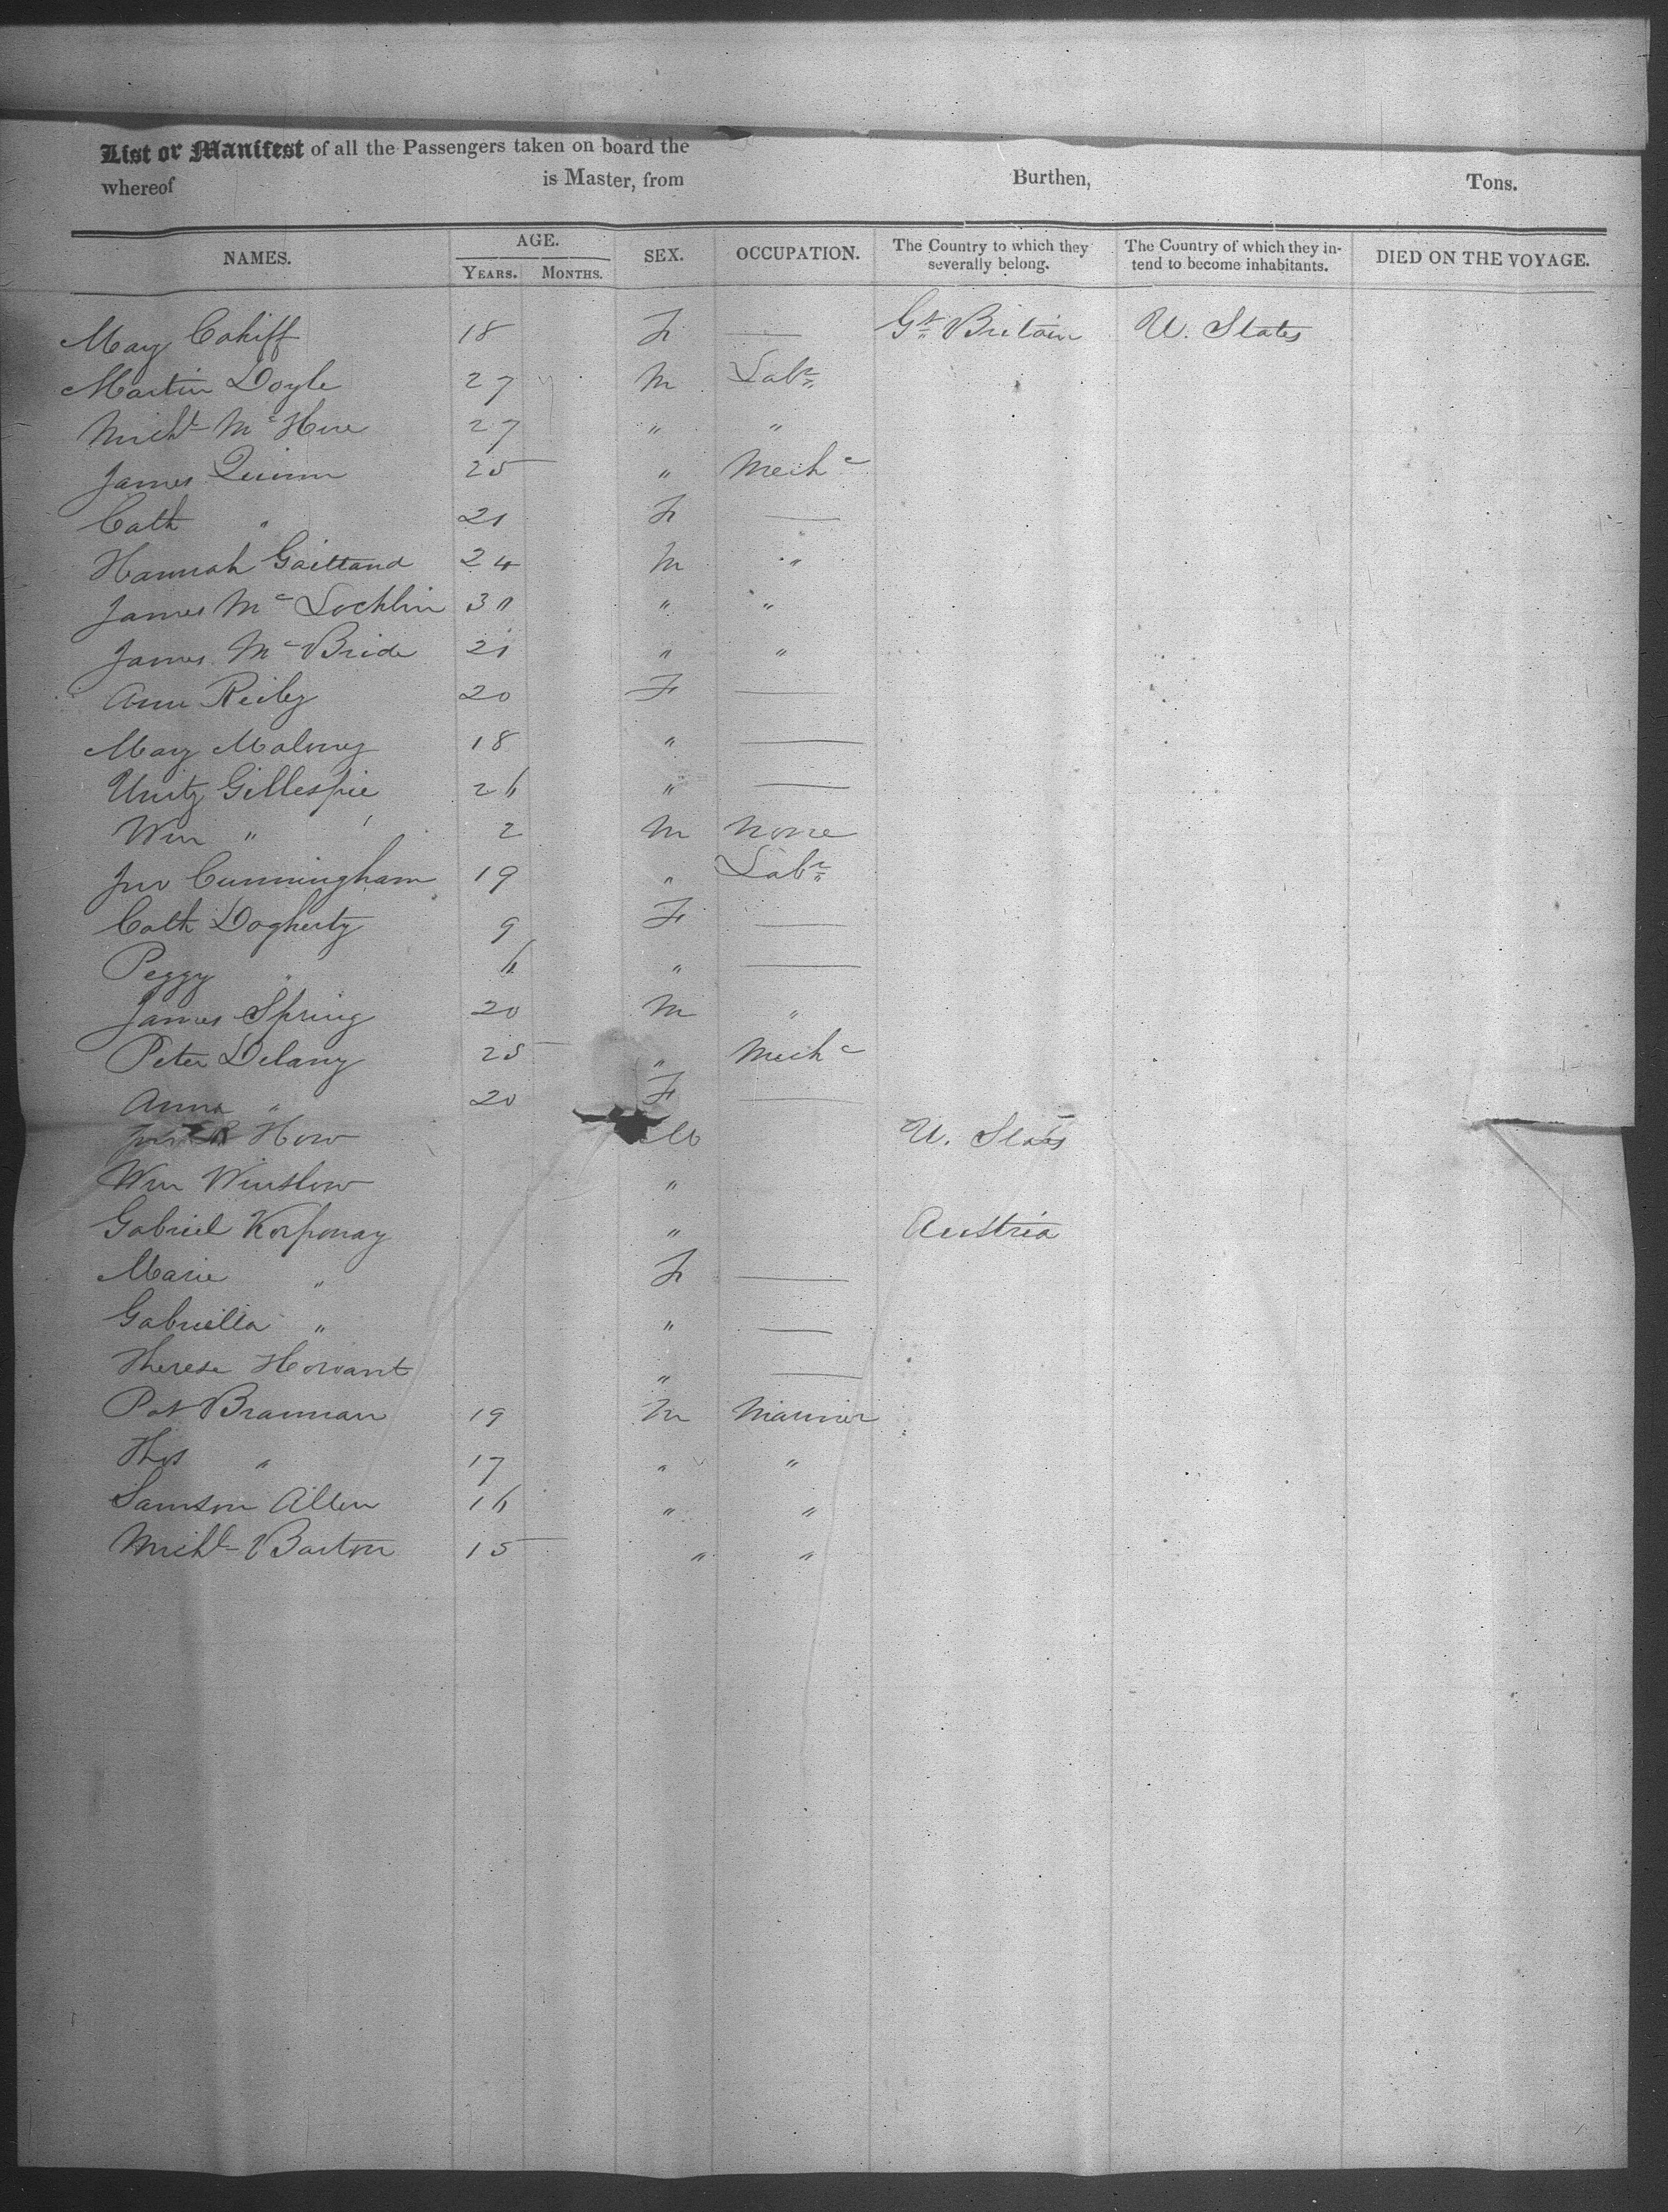 List or Manifest of all the Passengers taken on board the
whereof is Master, from Burthen, Tons.
NAMES. AGE. SEX. OCCUPATION. The Country to which they severally belong. The Country of which they intend to become inhabitants. DIED ON THE VOYAGE.
YEARS. MONTHS.
Mary Cahiff 18 F — Gt Britain U. States
Martin Doyle 27 M Labr
Michl McHue 27 " "
James Quinn 25 " Mechc
Cath " 21 F —
Hannah Gaitland 24 M "
James McLochlin 30 " "
James McBride 21 " "
Ann Reiley 20 F —
Mary Maloney 18 " —
Unity Gillespie 26 " —
Wm " 2 M None
Jno Cunningham 19 " Labr
Cath Dogherty 9 F —
Peggy " 6 " —
James Spring 20 M "
Peter Delany 25 " Mechc
Anna " 20 F —
R How M U. States
Wm Winslow "
Gabriel Korponay " Austria
Marie " F —
Gabriella " " —
Therese Horvant " —
Pat Brannan 19 M Mariner
Thos " 17 " "
Samson Allen 16 " "
Michl Barton 15 " "